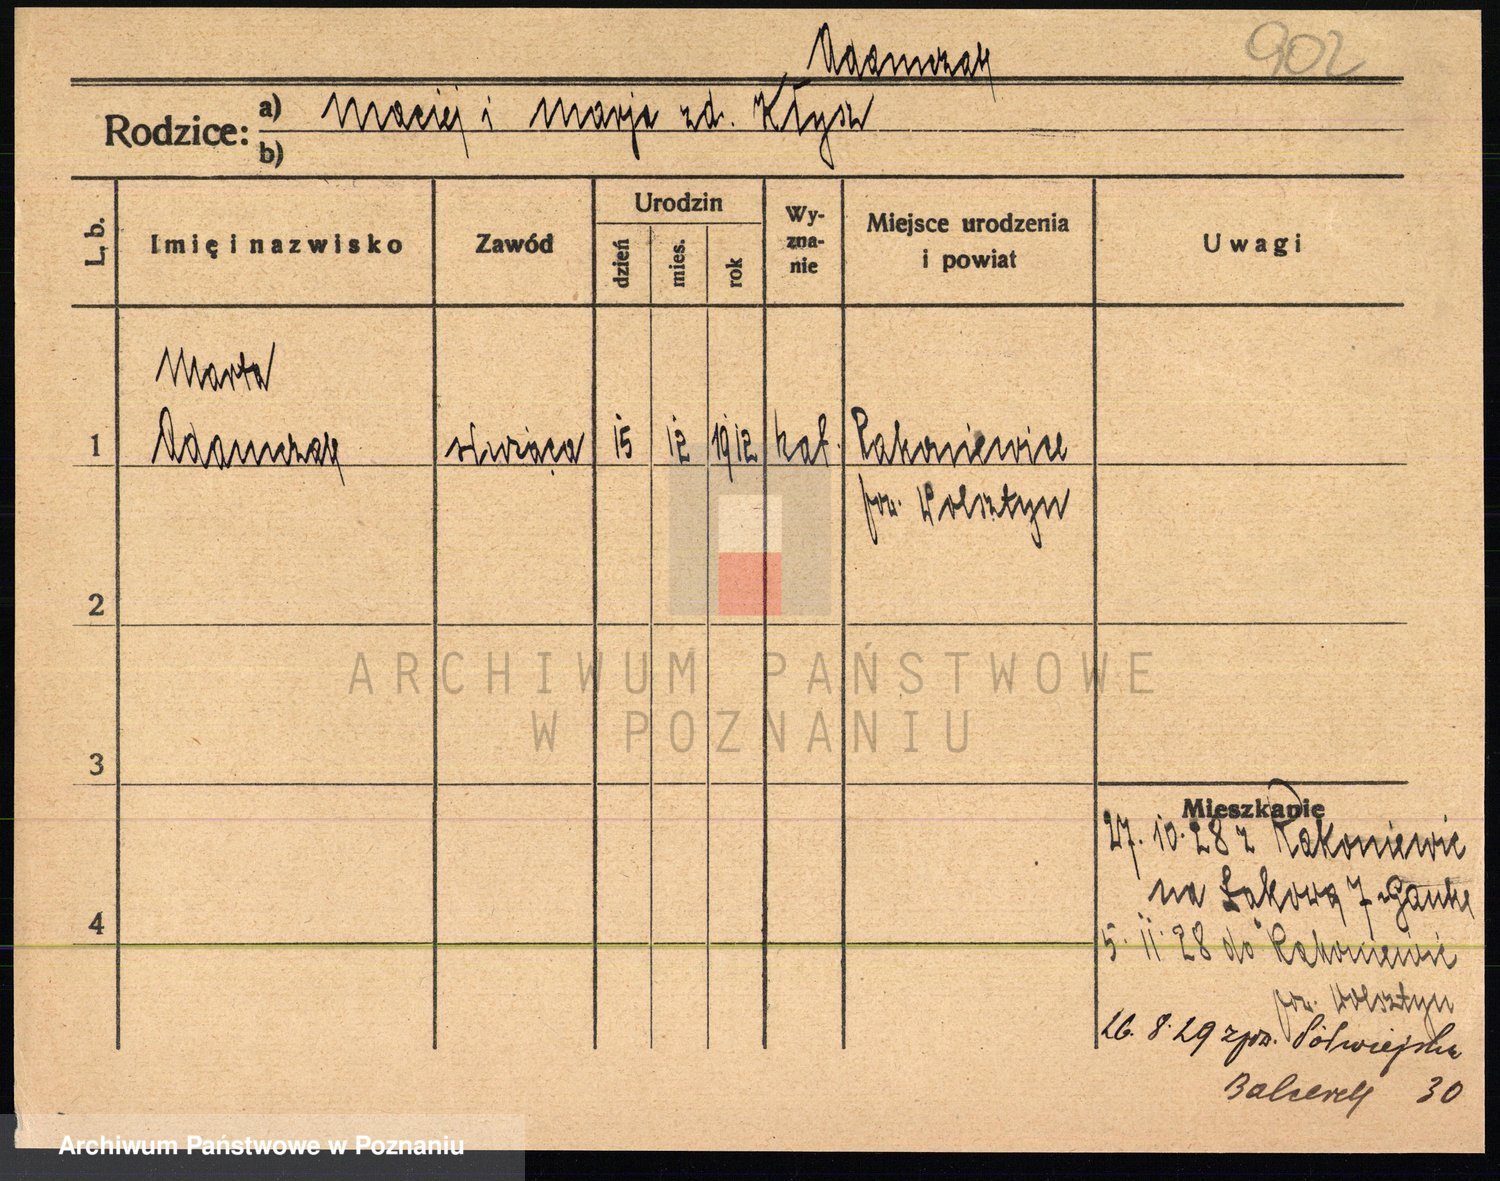 902
Adamczak
Rodzice:
a) Maciej i Marja zd. Kłysz
b)
L. b.
Imię i nazwisko
Zawód
Urodzin
dzień
mies.
rok
Wy-
zna-
nie
Miejsce urodzenia
i powiat
Uwagi
Marta
1 Adamczak służąca 15 12 1912 kat. Rakoniewice
pow. Wolsztyn
2
3
4
Mieszkanie
27. 10. 28 z Rakoniewic
na Łąkową 7
5. 11. 28 do Rakoniewic
pow. Wolsztyn
26. 8. 29 Półwiejska
30
ARCHIWUM PAŃSTWOWE
W POZNANIU
Archiwum Państwowe w Poznaniu